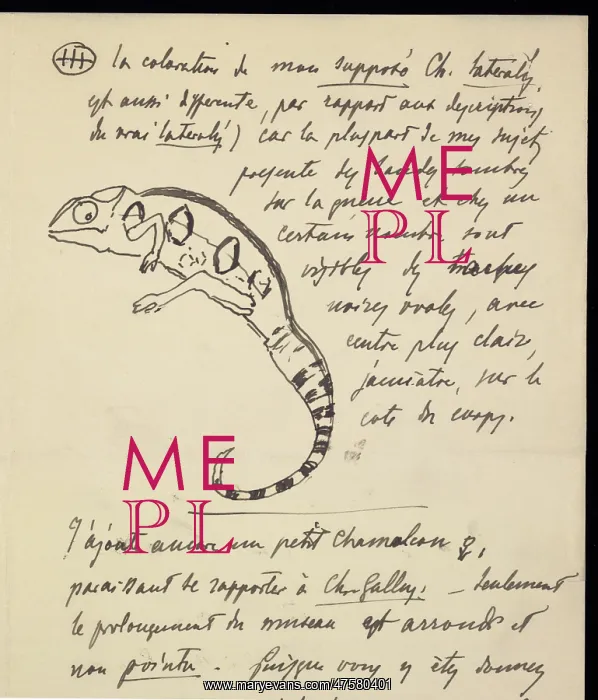 III La coloration de mon supposé Ch. lateralis,
est aussi différente, par rapport aux descriptions
du vrai lateralis) car la pluspart de mes sujets
présente des bandes sombres
sur la queue et chez un
certain nombre sont
visibles des taches
noires ovales, avec
centre plus claire,
jaunâtre, sur le
coté du corps.
J'ajoute encore un petit Chamaeleon ♀,
paraissant se rapporter à Ch. Gallus. - Seulement
le prolongement du museau est arrondi et
non pointu. - Puisque vous y êtes
ME
PL
ME
PL
www.maryevans.com/47580401